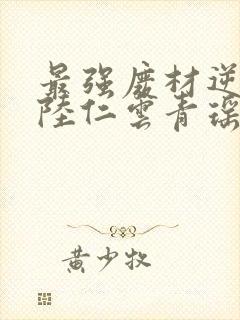 最强废材逆
陸仁雲青瑶
黄少牧